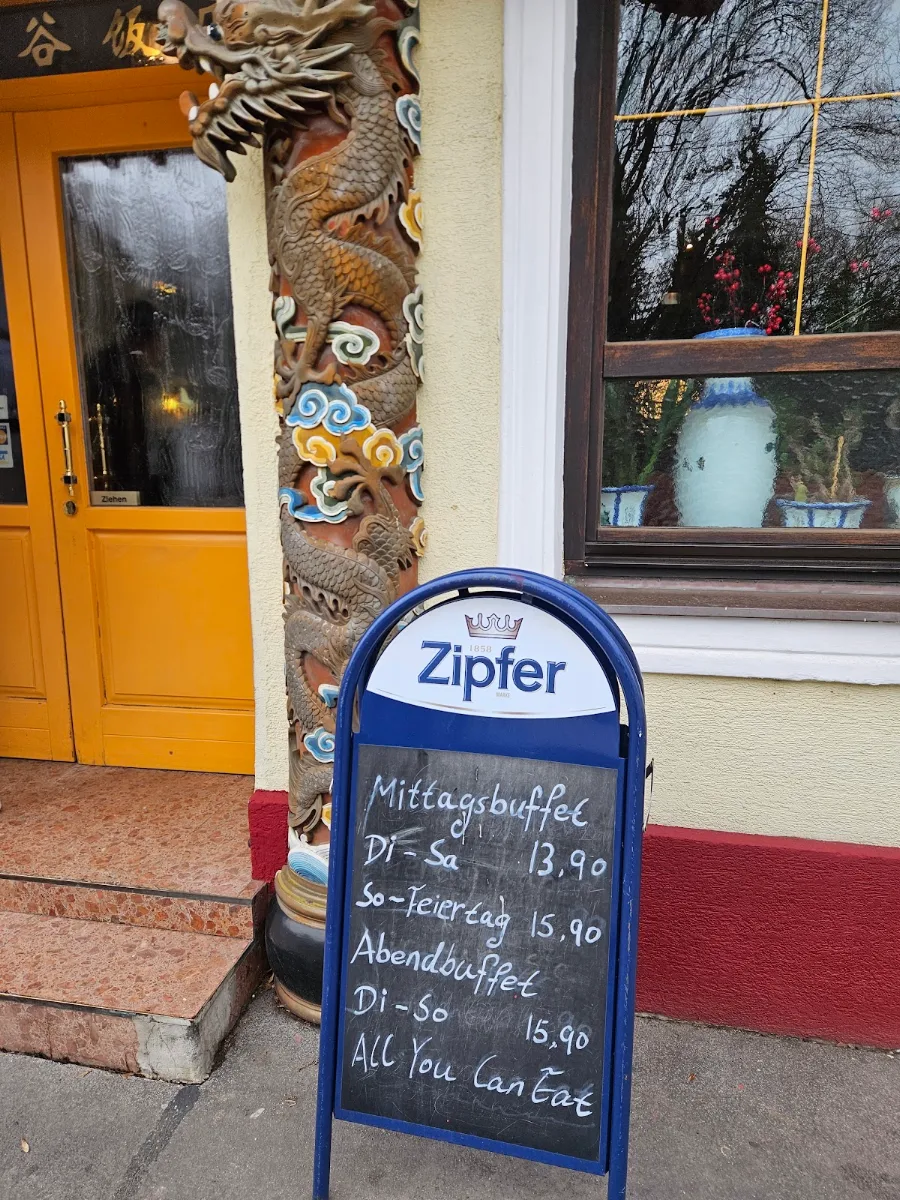 谷 饭
Ziehen
1858
Zipfer
Mittagsbuffet
Di-Sa 13,90
So-Feiertag 15,90
Abendbuffet
Di-So 15,90
All You Can Eat